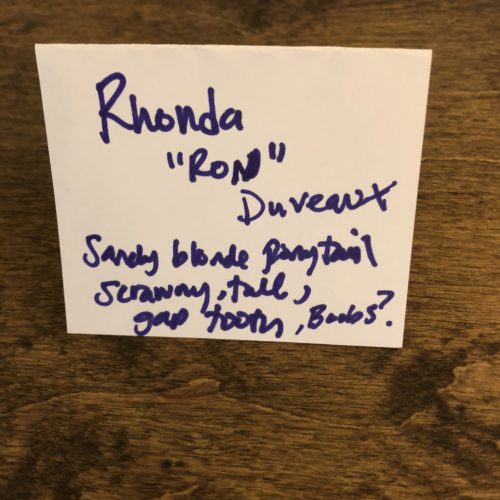 Rhonda
"RON"
Duveaux
Sandy blonde ponytail
scrawny, tall,
gap tooth, Boobs?